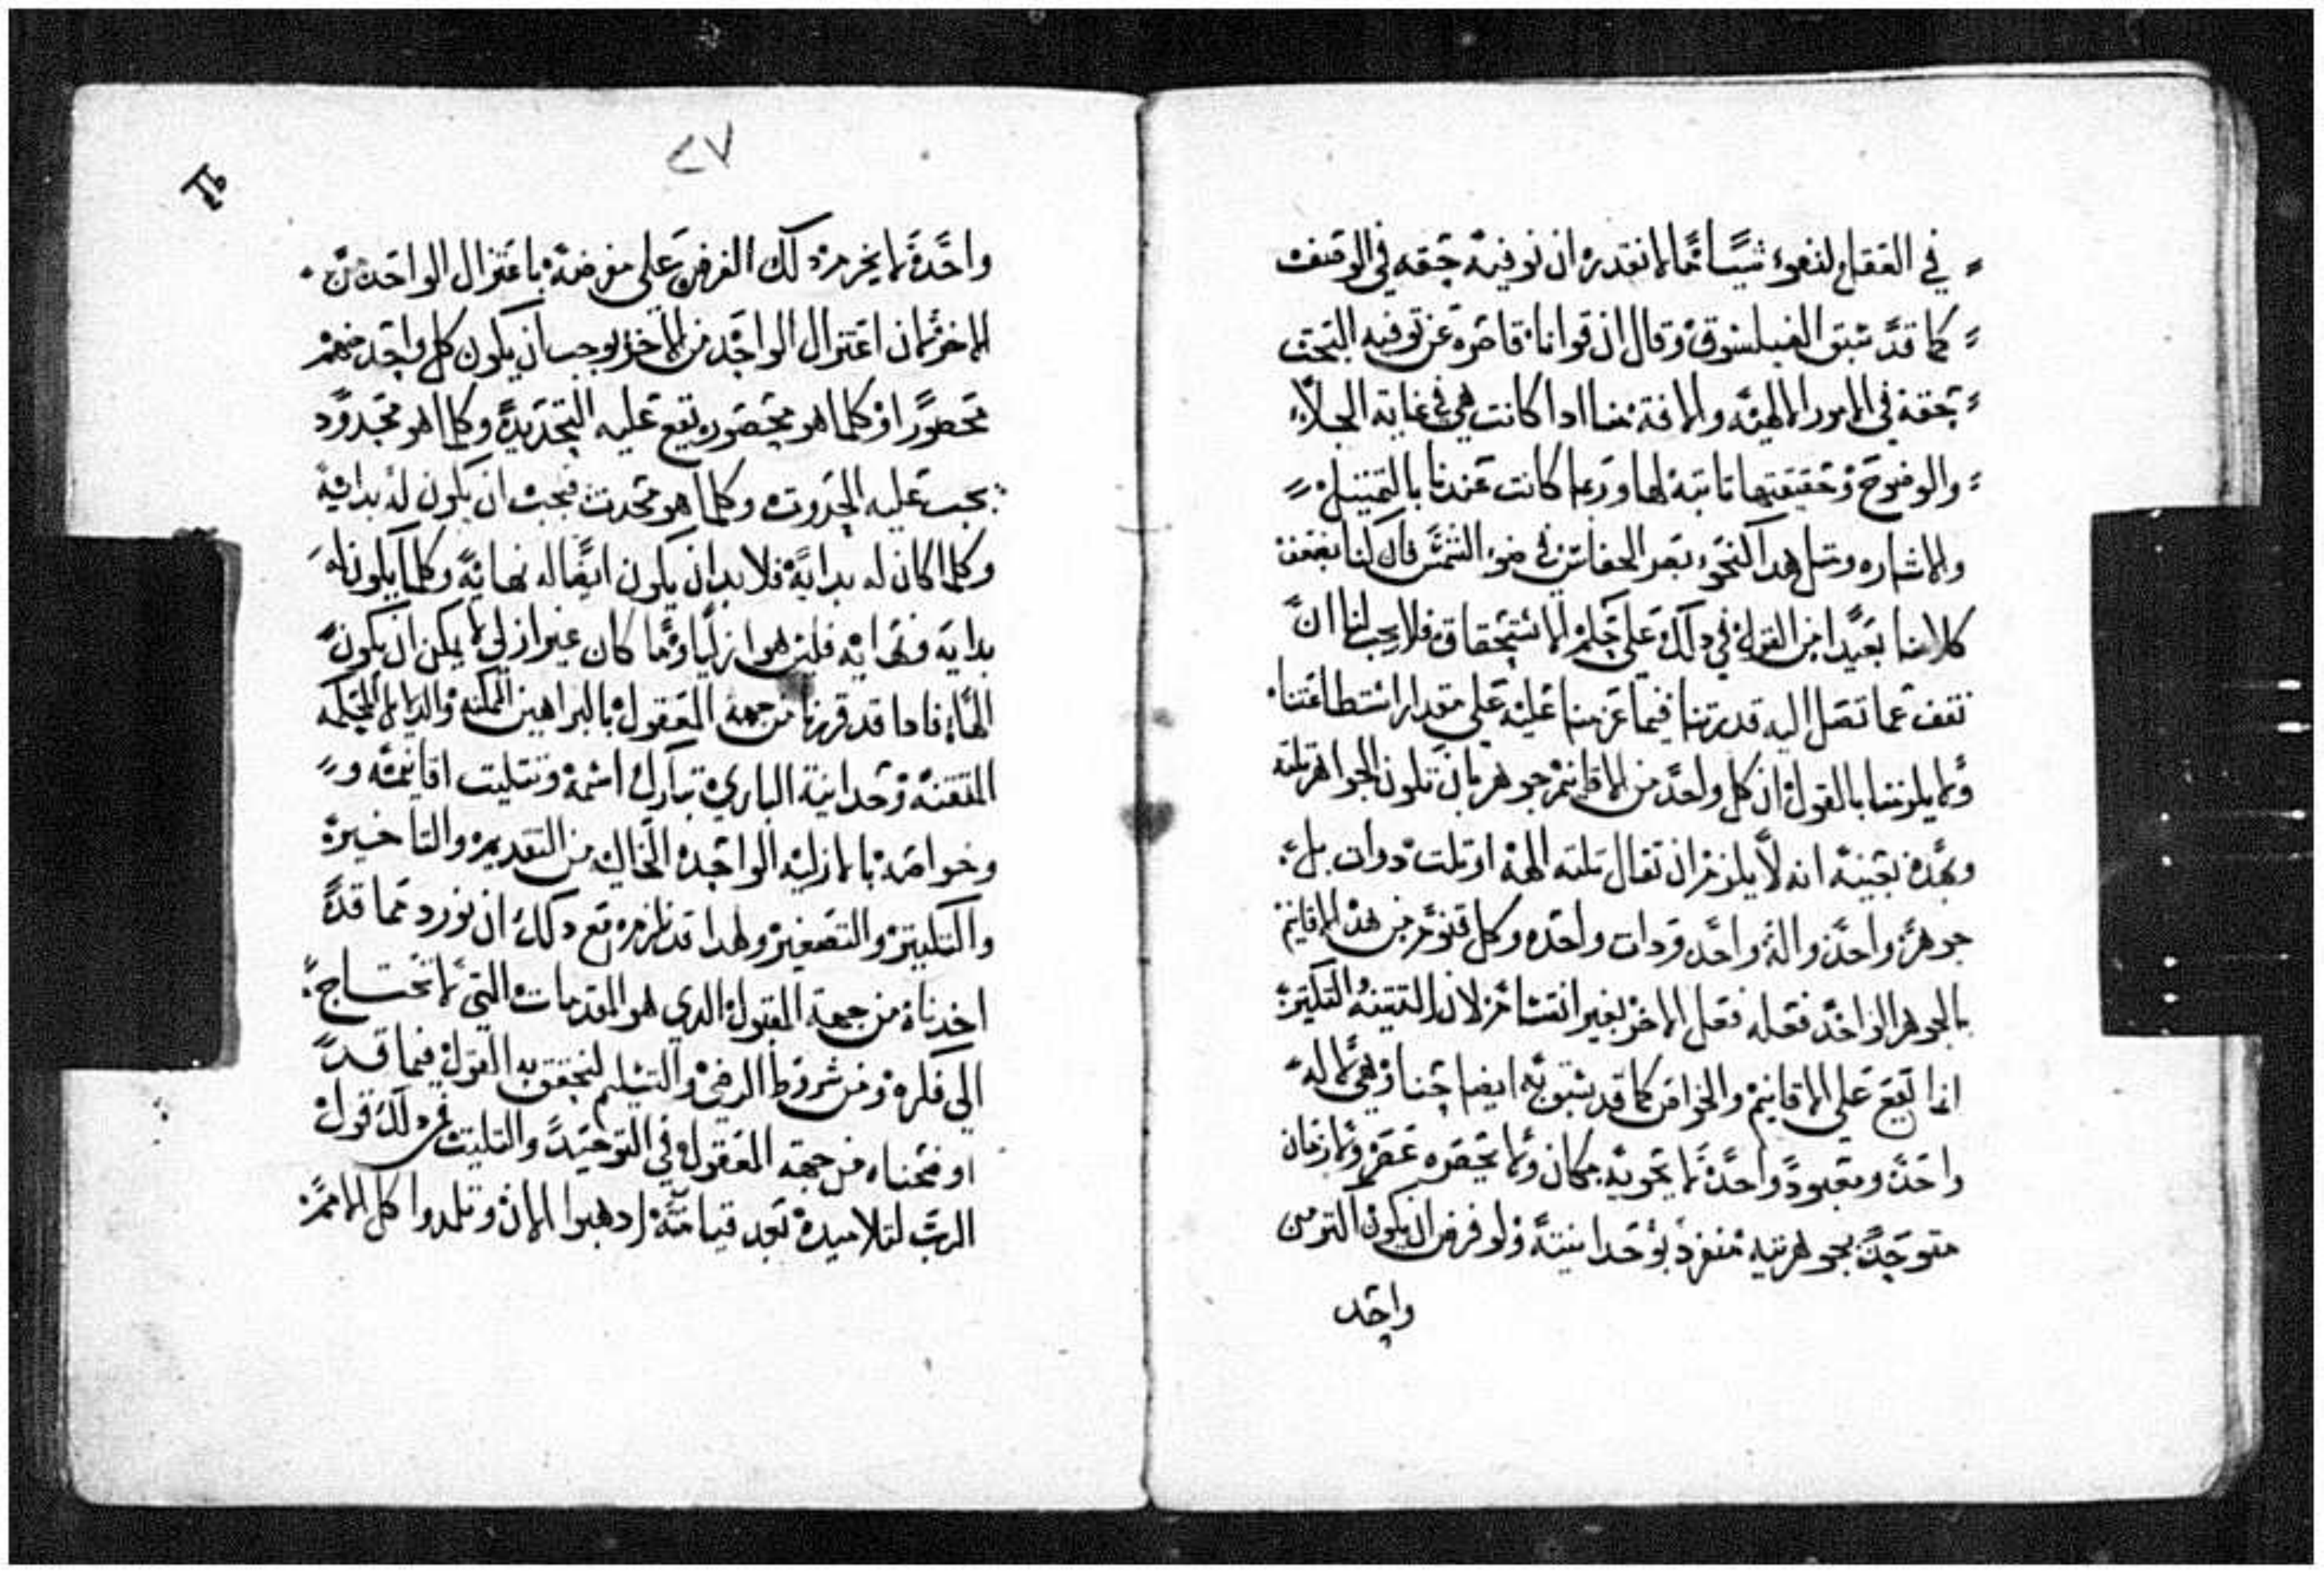 في العقل لنعوء شيئا ما لا نقدر ان نوفيه حقه في الوصف
كما قد سبق الفيلسوف وقال ان قوانا قاصره عن توفيه البحث
بحقه في الامور الالهيه والافة منا ادا كانت هي في غاية الجلاء
والوضوح وحقيقتها تابته لها وربما كانت عندنا بالتمتيل
والاشاره ومتل هدا النحو بصر الخفاش في ضوء الشمس فان كنا نضعف
كلامنا بعيدا من القول في دلك على حكم الاستحقاق فلا يجب لنا ان
نقف عما تصل اليه قدرتنا فيما عزمنا عليه على مقدار استطاعتنا
ولا يلزمنا بالقول ان كل واحد من الاقانيم جوهر بان تكون الجواهر تلته
وبهده بعينه انه لا يلزم ان تقال تلته الهة او تلت دوات بل
جوهر واحد واله واحد ودات واحده وكل قنوم من هده الاقانيم
بالجوهر الواحد فعله فعل الاخر بغير انقسام لان التتنيه التكتير
انما تقع على الاقانيم والخواص كما قد سبق به ايضاحنا وهي اله
واحد ومعبود واحد لا يحويه مكان ولا يحصره عصر ولا زمان
متوحد بجوهريته منفرد بوحدانيته ولو فرض ان يكون اكتر من
واحد
٢٧
واحد لا يخرم دلك الفرض على مفرضه باعتزال الواحد من
الاخر لان اعتزال الواحد من الاخر يوجب ان يكون كل واحد منهم
محصورا وكلما هو محصور يقع عليه التحديد وكلما هو محدود
يجب عليه الحدوت وكلما هو محدت فيجب ان يكون له بداية
وكلما كان له بداية فلا بد ان يكون ايضا له نهاية وكلما يكون له
بداية ونهاية فليس هو ازليا وما كان غير ازلي لا يمكن ان يكون
الها فادا قد قررنا من جهة المعقول بالبراهين الممكنه والدلايل المحكمه
المتقنه وحدانية الباري تبارك اسمه وتتليت اقانيمه و
وخواصه بالازليه الواحده الخاليه من التقديم والتاخير
والتكبير والتصغير ولهدا قد لزم مع دلك ان نورد مما قد
اخدناه من جهة المقبول الدي هو المقدمات التي لا تحتاج
الى فكره ومن شروط الرضى والتسليم لنحقق به القول فيما قد
اوضحناه من جهة المعقول في التوحيد والتتليت فمن دلك قول
الرب لتلاميده بعد قيامته ادهبوا الان وتلمدوا كل الامم